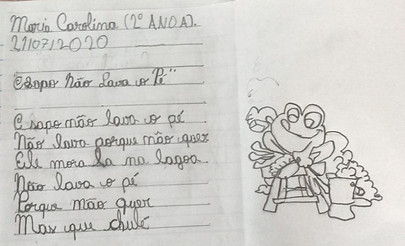 Maria Carolina (2º ANO A).
21/07/2020
O sapo não Lava o Pé"
O sapo não lava o pé
Não lava porque não quer
Ele mora la na lagoa
Não lava o pé
Porque não quer
Mas que chulé